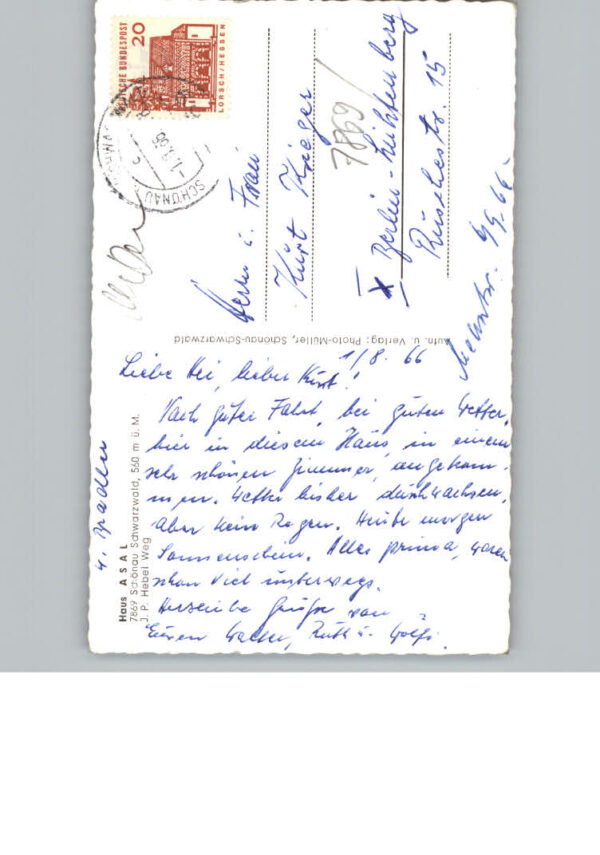 DEUTSCHE BUNDESPOST
20
LORSCH/HESSEN
SCHÖNAU
Herrn u. Frau
Kurt Krieger
7869
x Berlin-Lichtenberg
Rüschestr. 15
Aufn. u. Verlag: Photo-Müller, Schönau-Schwarzwald
1/8. 66
Liebe Hei, lieber Kurt!
Nach guter Fahrt, bei gutem Wetter,
hier in diesem Haus, in einem
sehr schönen Zimmer, angekom-
men. Wetter bisher durchwachsen,
aber kein Regen. Heute morgen
Sonnenschein. Alles prima, waren
schon viel unterwegs.
Herzliche Grüße von
Euren Ruth u. Wolfi.
Haus ASAL
7869 Schönau Schwarzwald, 560 m ü. M.
J. P. Hebel Weg